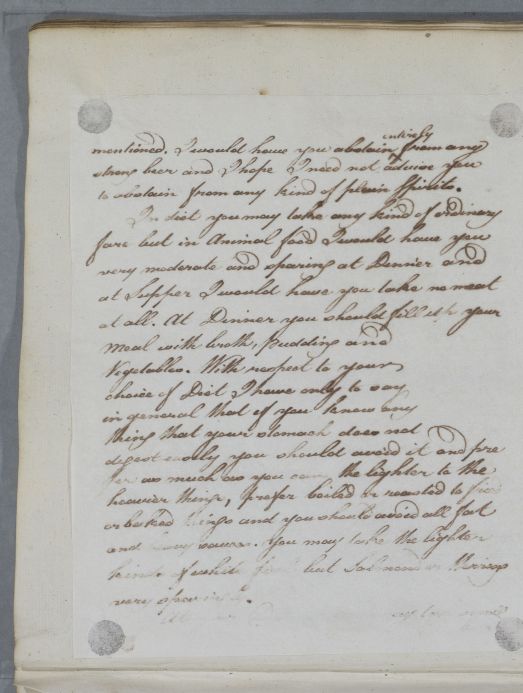 mentioned. I would have you abstain entirely from any
strong beer and I hope I need not advise you
to abstain from any kind of plain Spirits.
In diet you may take any kind of ordinary
fare but in Animal food I would have you
very moderate and sparing at Dinner and
at Supper I would have you take no meat
at all. At Dinner you should fill up your
meal with broth, pudding and
Vegetables. With respect to your
choice of Diet I have only to say
in general that if you know any
thing that your stomach does not
digest easily you should avoid it and pre
fer as much as you can the lighter to the
heavier things, prefer boiled or roasted to fried
or baked things and you should avoid all fat
and sauces. You may take the lighter
kinds of white but Salmond or
very sparingly.